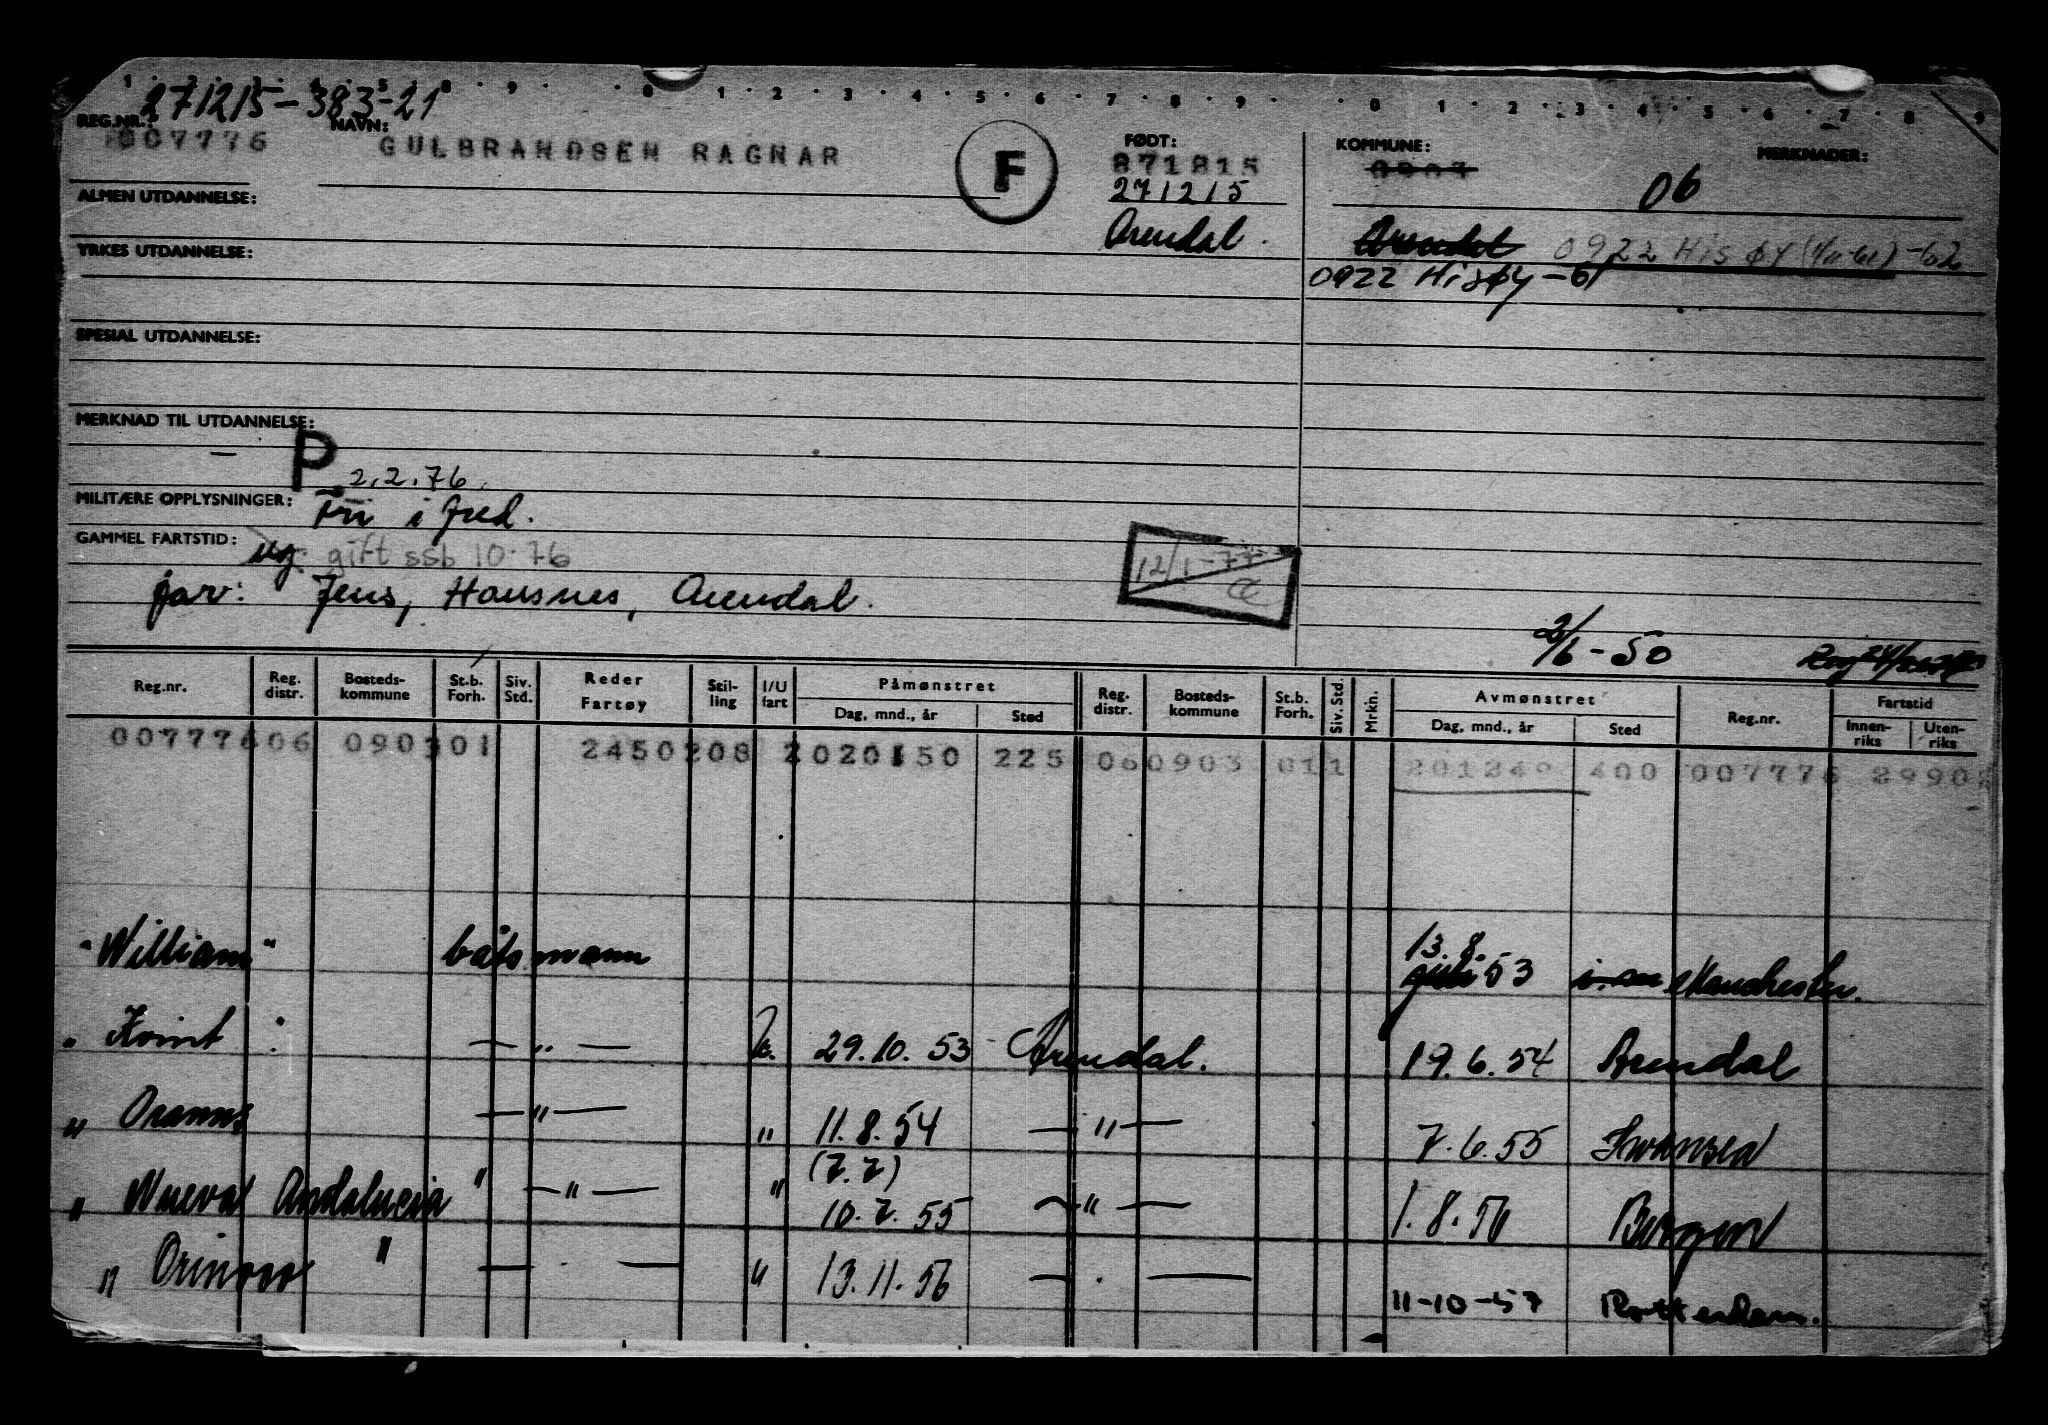 271215-383-21
REG.NR.: NAVN: FØDT: KOMMUNE: MERKNADER:
007776 GULBRANDSEN RAGNAR F 871815 0903
271215 06
ALMEN UTDANNELSE:
Arendal. Arendal 0922 Hisøy (1/11-61) -62
YRKES UTDANNELSE:
0922 Hisøy -61
SPESIAL UTDANNELSE:
MERKNAD TIL UTDANNELSE:
— P 2.2.76.
MILITÆRE OPPLYSNINGER: Fri i fred.
GAMMEL FARTSTID: ug. gift ssb 10-76
12/1-77
far: Jens, Hausnes, Arendal.
2/6-50
Reg.nr. Reg. distr. Bosteds-kommune St.b. Forh. Siv. Std. Reder Fartøy Stil-ling I/U fart Påmønstret Dag, mnd., år Sted Reg. distr. Bosteds-kommune St.b. Forh. Siv. Std. Mrkn. Avmønstret Dag, mnd., år Sted Reg.nr. Fartstid Innen-riks Uten-riks
007776 06 0903 01 2450208 2020150 225 06 0903 011 201249 400 007776 2990
"William" båtsmann 13.8. 53 Manchester.
" Kvint " — " — 29.10.53 Arendal. 19.6.54 Arendal
" Oranus — " — " 11.8.54 — " — 7.6.55 Swansea
(7.7)
" Nueva Andalucia " — " — " 10.7.55 — " — 1.8.56 Bergen
" Orinoco " — " — " 13.11.56 — " — 11-10-57 Rotterdam.